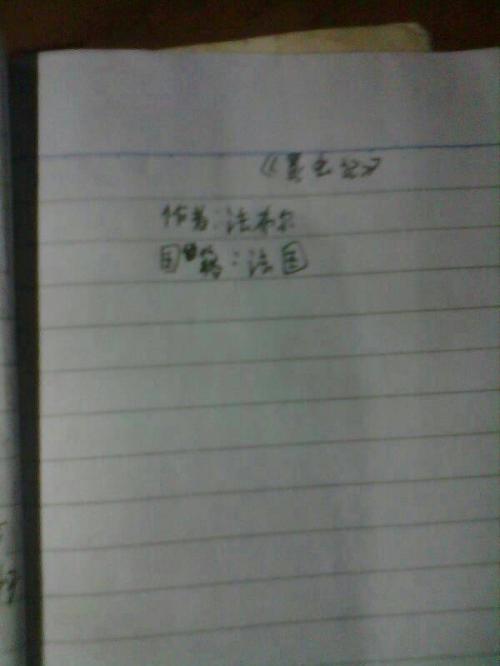 《昆虫记》
作者：法布尔
国籍：法国